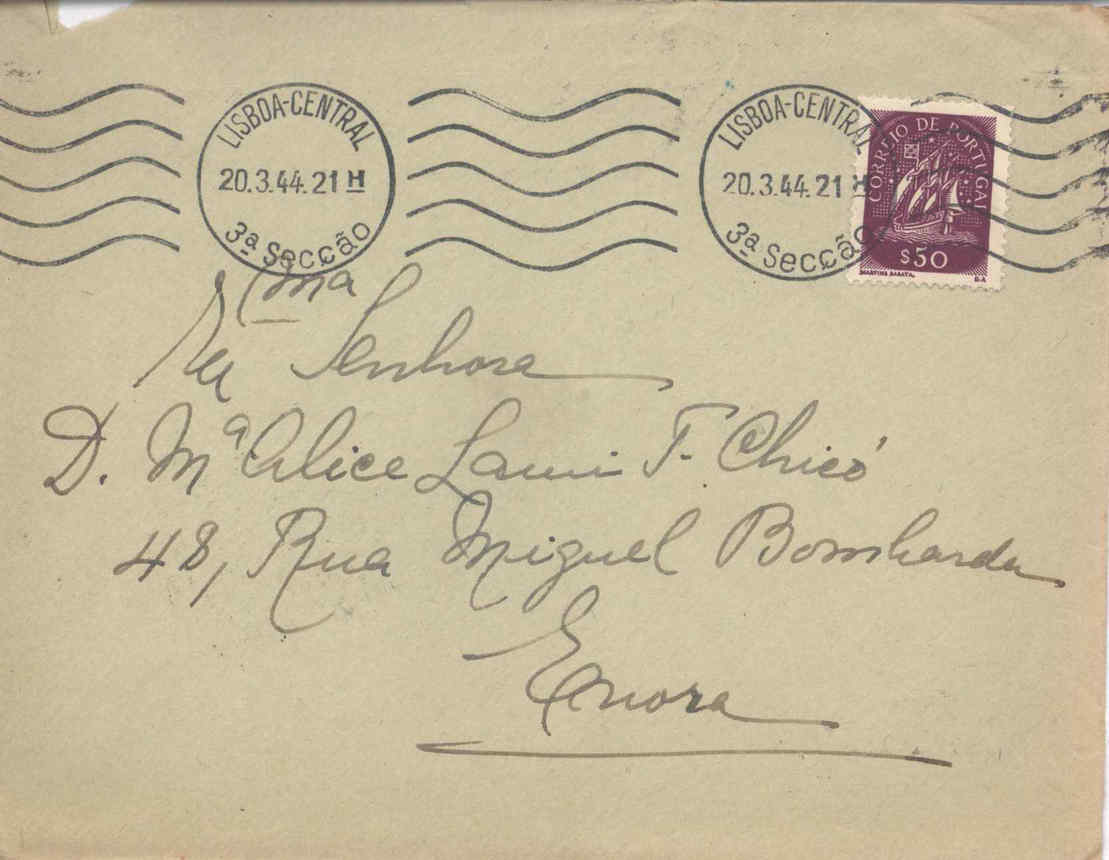 LISBOA-CENTRAL
20.3.44.21 H
3ª secção
LISBOA-CENTRAL
20.3.44.21 H
3ª secção
CORREIO DE PORTUGAL
$50
MARTINS BARATA.
Exma
Senhora
D. Mª Alice Lami F. Chicó
48, Rua Miguel Bombarda
Evora